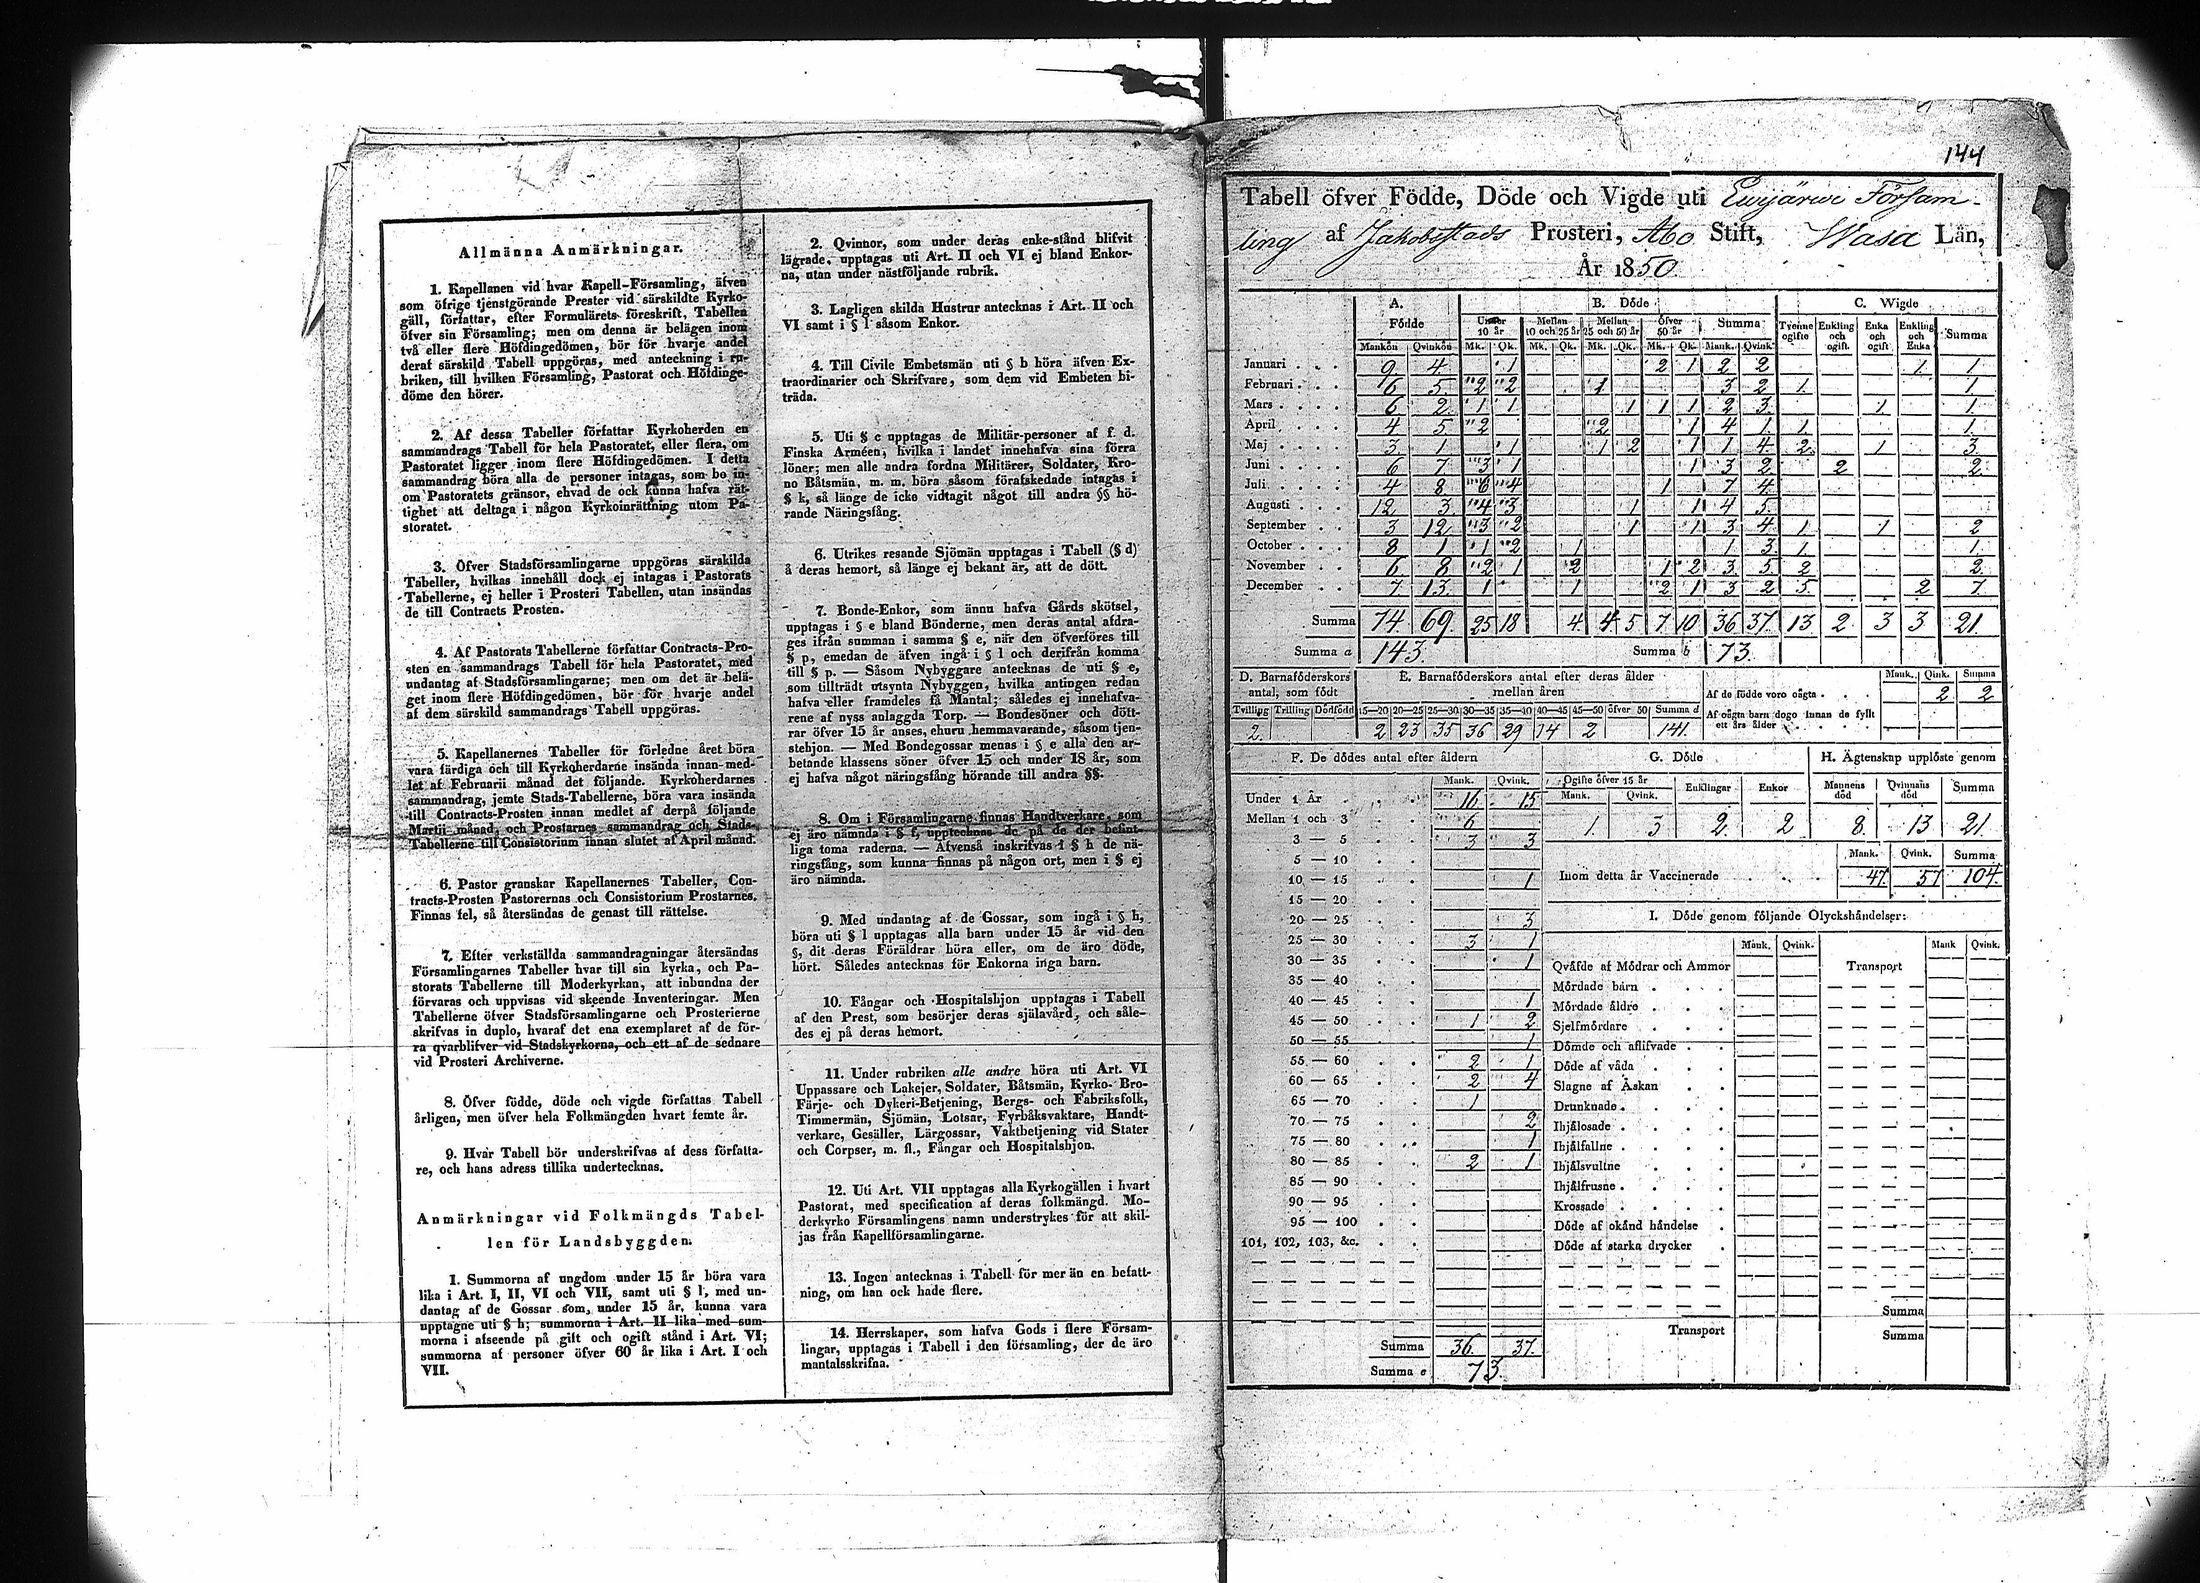 Allmänna Anmärkningar.
1. Kapellanen vid hvar Kapell-Församling, äfven
som öfrige tjenstgörande Prester vid särskildte Kyrko-
gäll, författar, efter Formulärets föreskrift, Tabellen
öfver sin Församling; men om denna är belägen inom
två eller flere Höfdingedömen, bör för hvarje andel
deraf särskild Tabell uppgöras, med anteckning i ru-
briken, till hvilken Församling, Pastorat och Höfdinge-
döme den hörer.
2. Af dessa Tabeller författar Kyrkoherden en
sammandrags Tabell för hela Pastoratet, eller flera, om
Pastoratet ligger inom flere Höfdingedömen. I detta
sammandrag böra alla de personer intagas, som bo in-
om Pastoratets gränsor, ehvad de ock kunna hafva rät-
tighet att deltaga i någon Kyrkoinrättning utom Pa-
storatet.
3. Öfver Stadsförsamlingarne uppgöras särskilda
Tabeller, hvilkas innehåll dock ej intagas i Pastorats
Tabellerne, ej heller i Prosteri Tabellen, utan insändas
de till Contracts Prosten.
4. Af Pastorats Tabellerne författar Contracts-Pro-
sten en sammandrags Tabell för hela Pastoratet, med
undantag af Stadsförsamlingarne; men om det är belä-
get inom flere Höfdingedömen, bör för hvarje andel
af dem särskild sammandrags Tabell uppgöras.
5. Kapellanernes Tabeller för förledne året böra
vara färdiga och till Kyrkoherdarne insända innan med-
let af Februarii månad det följande. Kyrkoherdarnes
sammandrag, jemte Stads-Tabellerne, böra vara insända
till Contracts-Prosten innan medlet af derpå följande
Martii månad, och Prostarnes sammandrag och Stads-
Tabellerne till Consistorium innan slutet af April månad.
6. Pastor granskar Kapellanernes Tabeller, Con-
tracts-Prosten Pastorernas och Consistorium Prostarnes.
Finnas fel, så återsändas de genast till rättelse.
7. Efter verkställda sammandragningar återsändas
Församlingarnes Tabeller hvar till sin kyrka, och Pa-
storats Tabellerne till Moderkyrkan, att inbundna der
förvaras och uppvisas vid skeende Inventeringar. Men
Tabellerne öfver Stadsförsamlingarne och Prosterierne
skrifvas in duplo, hvaraf det ena exemplaret af de för-
ra qvarblifver vid Stadskyrkorna, och ett af de sednare
vid Prosteri Archiverne.
8. Öfver födde, döde och vigde författas Tabell
årligen, men öfver hela Folkmängden hvart femte år.
9. Hvar Tabell bör underskrifvas af dess författa-
re, och hans adress tillika undertecknas.
Anmärkningar vid Folkmängds Tabel-
len för Landsbyggden.
1. Summorna af ungdom under 15 år böra vara
lika i Art. I, II, VI och VII, samt uti § l, med un-
dantag af de Gossar som, under 15 år, kunna vara
upptagne uti § h; summorna i Art. II lika med sum-
morna i afseende på gift och ogift stånd i Art. VI;
summorna af personer öfver 60 år lika i Art. I och
VII.
2. Qvinnor, som under deras enke-stånd blifvit
lägrade, upptagas uti Art. II och VI ej bland Enkor-
na, utan under nästföljande rubrik.
3. Lagligen skilda Hustrur antecknas i Art. II och
VI samt i § l såsom Enkor.
4. Till Civile Embetsmän uti § b höra äfven Ex-
traordinarier och Skrifvare, som dem vid Embeten bi-
träda.
5. Uti § c upptagas de Militär-personer af f. d.
Finska Arméen, hvilka i landet innehafva sina förra
löner; men alle andra fordna Militärer, Soldater, Kro-
no Båtsmän, m. m. böra såsom förafskedade intagas i
§ k, så länge de icke vidtagit något till andra §§ hö-
rande Näringsfång.
6. Utrikes resande Sjömän upptagas i Tabell (§ d)
å deras hemort, så länge ej bekant är, att de dött.
7. Bonde-Enkor, som ännu hafva Gårds skötsel,
upptagas i § e bland Bönderne, men deras antal afdra-
ges ifrån summan i samma § e, när den öfverföres till
§ p, emedan de äfven ingå i § l och derifrån komma
till § p. — Såsom Nybyggare antecknas de uti § e,
som tillträdt utsynta Nybyggen, hvilka antingen redan
hafva eller framdeles få Mantal; således ej innehafva-
rene af nyss anlaggda Torp. — Bondesöner och dött-
rar öfver 15 år anses, ehuru hemmavarande, såsom tjen-
stehjon. — Med Bondegossar menas i § e alla den ar-
betande klassens söner öfver 15 och under 18 år, som
ej hafva något näringsfång hörande till andra §§.
8. Om i Församlingarne finnas Handtverkare, som
ej äro nämnda i § f, upptecknas de på de der befint-
liga toma raderna. — Äfvenså inskrifvas i § h de nä-
ringsfång, som kunna finnas på någon ort, men i § ej
äro nämnda.
9. Med undantag af de Gossar, som ingå i § h,
böra uti § l upptagas alla barn under 15 år vid den
§, dit deras Föräldrar höra eller, om de äro döde,
hört. Således antecknas för Enkorna inga barn.
10. Fångar och Hospitalshjon upptagas i Tabell
af den Prest, som besörjer deras själavård, och såle-
des ej på deras hemort.
11. Under rubriken alle andre höra uti Art. VI
Uppassare och Lakejer, Soldater, Båtsmän, Kyrko- Bro-
Färje- och Dykeri-Betjening, Bergs- och Fabriksfolk,
Timmermän, Sjömän, Lotsar, Fyrbåksvaktare, Handt-
verkare, Gesäller, Lärgossar, Vaktbetjening vid Stater
och Corpser, m. fl., Fångar och Hospitalshjon.
12. Uti Art. VII upptagas alla Kyrkogällen i hvart
Pastorat, med specification af deras folkmängd. Mo-
derkyrko Församlingens namn understrykes för att skil-
jas från Kapellförsamlingarne.
13. Ingen antecknas i Tabell för mer än en befatt-
ning, om han ock hade flere.
14. Herrskaper, som hafva Gods i flere Försam-
lingar, upptagas i Tabell i den församling, der de äro
mantalsskrifna.
144
Tabell öfver Födde, Döde och Vigde uti Ewijärwi Församling
af Jakobsstads Prosteri, Åbo Stift, Wasa Län,
År 1850.
A. Födde B. Döde C. Vigde
Under 10 år Mellan 10 och 25 år Mellan 25 och 50 år Öfver 50 år Summa Tvenne ogifte Enkling och ogift Enka och ogift Enkling och Enka Summa
Mankön Qvinkön Mk. Qk. Mk. Qk. Mk. Qk. Mk. Qk. Mank. Qvink.
Januari 9 4 1 2 1 2 2 1 1
Februari 6 5 2 2 1 3 2 1 1
Mars 6 2 1 1 1 1 1 2 3 1 1
April 4 5 2 2 1 4 1 1 1
Maj 3 1 1 1 2 1 1 4 2 1 3
Juni 6 7 3 1 1 3 2 2 2
Juli 4 8 6 4 1 7 4
Augusti 12 3 4 3 1 1 4 5
September 3 12 3 2 1 1 3 4 1 1 2
October 8 1 1 2 1 1 3 1 1
November 6 8 2 1 2 1 2 3 5 2 2
December 7 13 1 1 2 1 3 2 5 2 7
Summa 74 69 25 18 4 4 5 7 10 36 37 13 2 3 3 21
Summa a 143. Summa b 73.
D. Barnaföderskors antal, som födt
Tvilling Trilling Dödfödd
2
E. Barnaföderskors antal efter deras ålder mellan åren
15—20 20—25 25—30 30—35 35—40 40—45 45—50 öfver 50 Summa d
2 23 35 36 29 14 2 141.
Mank. Qink. Summa
Af de födde voro oägta 2 2
Af oägta barn dogo innan de fyllt
ett års ålder
F. De dödes antal efter åldern
Mank. Qvink.
Under 1 År 16 15
Mellan 1 och 3 6
3 — 5 3 3
5 — 10
10 — 15 1
15 — 20
20 — 25 3
25 — 30 3 1
30 — 35 1
35 — 40
40 — 45 1
45 — 50 1 2
50 — 55 1
55 — 60 2 1
60 — 65 2 4
65 — 70 1
70 — 75 2
75 — 80 1
80 — 85 2 1
85 — 90
90 — 95
95 — 100
101, 102, 103, &c.
Summa 36. 37.
Summa e 73.
G. Döde
Ogifte öfver 15 år Enklingar Enkor
Mank. Qvink.
1. 3 2. 2
H. Ägtenskap upplöste genom
Mannens död Qvinnans död Summa
8. 13 21
Mank. Qvink. Summa
Inom detta år Vaccinerade 47. 57 104.
I. Döde genom följande Olyckshändelser:
Mank. Qvink. Mank Qvink.
Qväfde af Mödrar och Ammor Transport
Mördade barn
Mördade äldre
Sjelfmördare
Dömde och aflifvade
Döde af våda
Slagne af Åskan
Drunknade
Ihjälosade
Ihjälfallne
Ihjälsvultne
Ihjälfrusne
Krossade
Döde af okänd händelse
Döde af starka drycker
Summa
Transport Summa